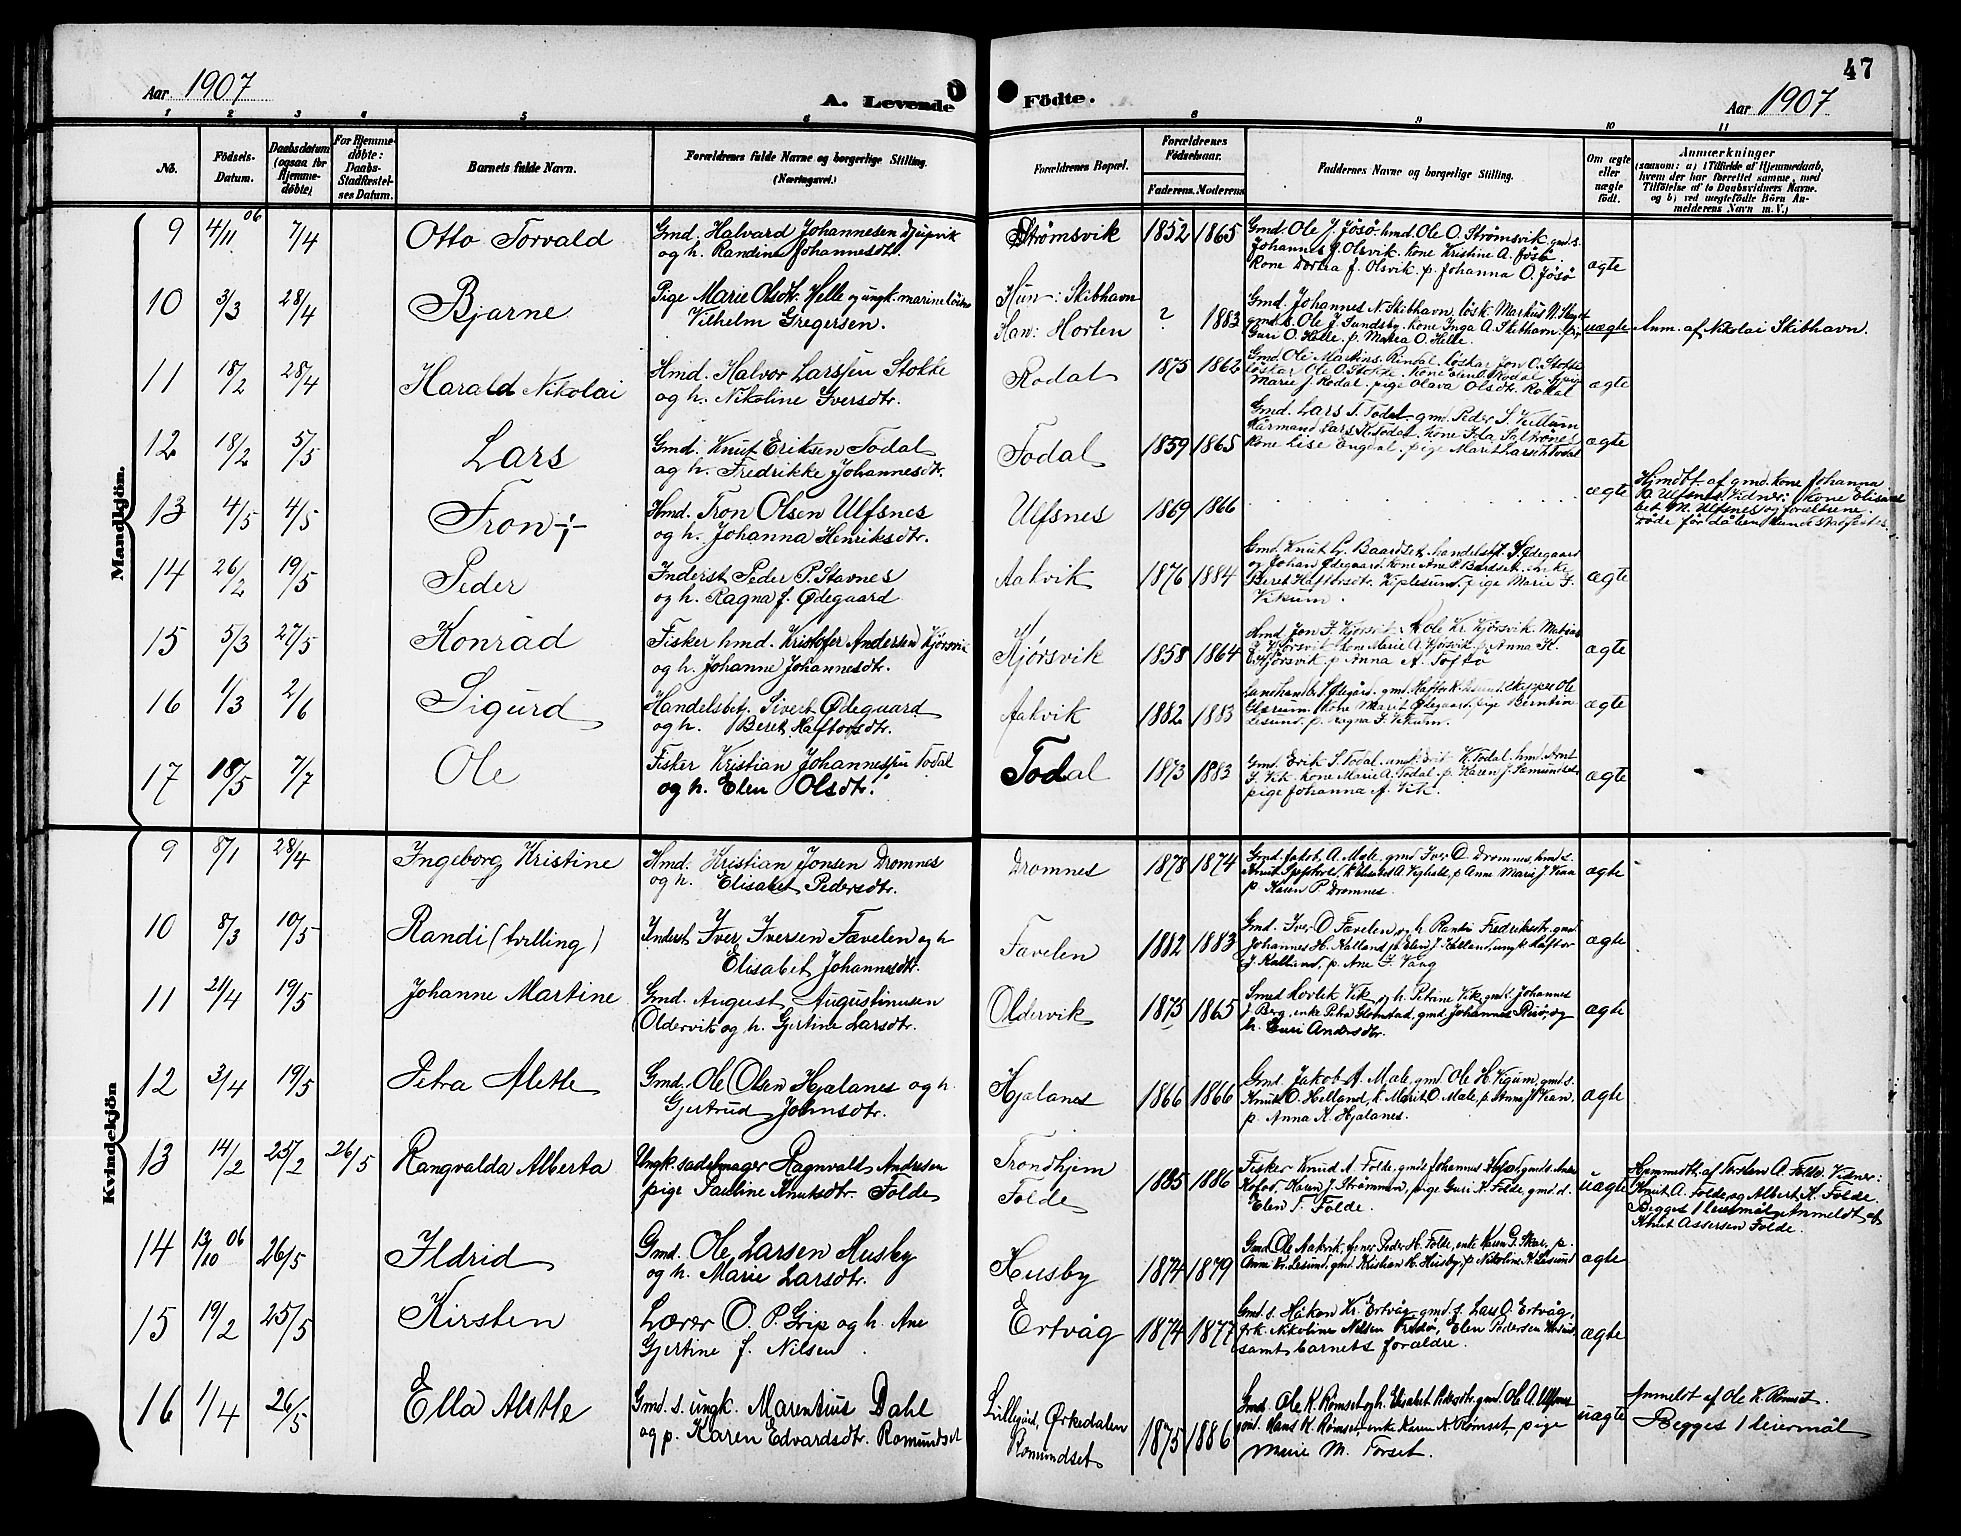 47
Aar 1907
A. Levende Födte.
Aar 1907
1 2 3 4 5 6 8 9 10 11
No.
Födsels-Datum.
Daabsdatum (ogsaa for Hjemme-döbte)
For Hjemme-döbte: Daabs-Stadfæstel-ses Datum.
Barnets fulde Navn.
Forældrenes fulde Navne og borgerlige Stilling.
(Næringsvei.)
Forældrenes Bopæl.
Forældrenes Födselsaar.
Faderens. Moderens
Faddernes Navne og borgerlige Stilling.
Om ægte eller uægte födt.
Anmærkninger
(saasom: a) i Tilfælde af Hjemmedaab, hvem der har forrettet samme, med Tilföielse af to Daabsvidners Navne. og b) ved uegtefödte Börn Anmelderens Navn m. V.)
Mandkjön.
9 4/11 06 7/4 Otto Torvald
Gmd. Halvard Johannesen Djupvik
og h. Randine Johannesdtr.
Strømsvik 1852 1865
Gmd. Ole J. Jösö. hmd. Ole O. Strømsvik gmd.s.
Johannes J. Olsvik. Kone Kristine A. Jösö.
Kone Dortea J. Olsvik. p. Johanna O. Jösö
ægte
10 3/3 28/4 Bjarne
Pige Marie Olsdtr. Helle og ungk. marine
Vilhelm Gregersen.
Hun: Skibhavn
Han: Horten
? 1883
Gmd. Johannes N. Skibhavn, løsk. Markus
gmd.s. Ole J. Sundsby. Kone Inga A. Skibhavn
Guri O. Helle. p. Marea O. Helle.
uægte
Anm. af Nikolai Skibhavn.
11 18/2 28/4 Harald Nikolai
Hmd. Halvor Larssen Stokke
og h. Nikoline Iversdtr.
Rodal 1875 1862
Gmd. Ole Martins. Rindal. løskar Jon O. Stokke
løskar Ole O. Stokke. Kone Elen O. Rodal
Marie J. Rodal. pige Olava Olsdtr. Rodal
ægte
12 18/2 5/5 Lars
Gmd. Knut Eriksen Todal
og h. Fredrikke Johannesdtr.
Todal 1859 1865
Gmd. Lars T. Todal gmd. Peder S.
Kårmand Lars K. Todal. Kone Ida
Kone Lise Engdal. pige Marit Larsdtr Todal
ægte
13 4/5 4/5 Tron
Hmd. Tron Olsen Ulfsnes
og h. Johanna Henriksdtr.
Ulfsnes 1869 1866
ægte
Hjmdbt. af gmd. kone Johanna
Ulfsnes. Vidner: kone Elisa-
bet M. Ulfsnes og forældrene.
Døde før dåben kunde stadfestes.
14 26/2 19/5 Peder
Inderst Peder P. Stavnes
og h. Ragna f. Ødegaard
Aakvik 1876 1884
Gmd. Knut Baardset. handelsbt. S. Ødegaard
og Johan Ødegaard. Kone Ane P. Bardset. enke
Beret Haftorsdtr. pige Marie I.
Vikum.
ægte
15 5/3 27/5 Konrad
Fisker hmd. Kristofer Andersen Kjørsvik
og h. Johanne Johannesdtr.
Kjørsvik 1858 1864
Hmd. Jon I. Kjørsvik. Ole Kr. Kjørsvik. Matias
Kjørsvik Kone Marie A. Kjørsvik. p. Anna K.
Kjørsvik p. Anna A. Toftö
ægte
16 1/3 2/6 Sigurd
Handelsbet. Sivert Ødeguard
og h. Beret Halftorsdtr.
Aakvik 1882 1883
Landhand. S. Ødegård. gmd. Haftor K. Lesund. Skipper Ole
Glærum. Kone Marit Ødegaard. pige Berntin
Lesund. p. Ragna I. Vikum.
ægte
17 18/5 7/7 Ole
Fisker Kristian Johannessen Todal
og h. Elen Olsdtr.
Todal 1873 1883
Gmd. Erik S. Todal. ungk. Erik K. Todal. hmd. Arnt
I. Vik. Kone Marie A. Todal. p. Karen J.
pige Johanna A. Vik.
ægte
Kvindekjön
9 8/1 28/4 Ingeborg Kristine
Hmd. Kristian Jonsen Dromnes
og h. Elisabet Pedersdtr.
Dromnes 1878 1874
Gmd. Jakob A. Male. gmd. Iver O. Dromnes, hmd.s.
Knut p. Anne Marie J. Vean
p. Karen P. Dromnes.
ægte
10 8/3 10/5 Randi (tvilling)
Inderst Iver Iversen Favelen og h
Elisabet Johannesdtr.
Favelen 1882 1883
Gmd. Iver O. Favelen og h. Randi Fredriksdtr. gmd
Johannes H. Halland p. Elen J. Halland, ungk. Haftor
J. Halland, p. Ane I. Vaag
ægte
11 21/4 19/5 Johanne Martine
Gmd. August Augustinusen
Oldervik og h. Gjertine Larsdtr.
Oldervik 1875 1865
Smed Hovlek Vik og h. Petrine Vik, gmd. Johannes
J. Berg, enke Petra Glomstad, gmd. Johannes og
h. Guri Andersdtr.
ægte
12 3/4 19/5 Petra Alette
Gmd. Ole Olsen Hjalanes og h.
Gjertrud Johnsdtr.
Hjalanes 1866 1866
Gmd. Jakob A. Male, gmd. Ole H. Vigum, gmd.s.
Knut O. Helland, k. Marit O. Male, p. Anne J. Vean,
p. Anna K. Hjalanes.
ægte
13 14/2 25/2 26/5 Rangvalda Alberta
Ungk. sadelmager Ragnvald Andersen
pige Pauline Knutsdtr. Folde
Trondhjem
Folde
1885 1886
Fisker Knud A. Folde, gmds. Johannes gmd.s. Anders
Karen J. Strømmen, pige Guri K. Folde, gmd. d.
Elen T. Folde.
uægte
Hjemmedt. af Torsten A. Folde. Vidner:
Knut A. Folde og Albert K. Folde.
Begges 1 leiermål. Anmeldt af
Knut Assersen Folde.
14 13/10 06 26/5 Ildrid
Gmd. Ole Larsen Husby
og h. Marie Larsdtr.
Husby 1874 1879
Gmd. Ole Aakvik, Peder H. Folde, enke Karen I. Skar, p.
Anne Kr. Lesund, gmd. Kristian H. Husby, p. Nikoline H. Lesund
ægte
15 19/2 25/5 Kirsten
Lærer O. P. Grip og h. Ane
Gjertine f. Nilsen.
Ertvåg 1874 1877
Gmd. s. Håkon Kr. Ertvåg, gmd. s. Lars O. Ertvåg,
frk. Nikoline Nilsen Elen Pedersen
samt barnets forældre.
ægte
16 1/4 26/5 Ella Alette
Gmd. s. ungk. Marentius Dahl
og p. Karen Edvardsdtr. Romundset
Lillegård, Ørkedalen
Romundset
1875 1886
Gmd. Ole K. Rømset og h. Elisabet Pedersdtr. gmd. Ole A. Ulfsnes
gmd. Hans K. Rømset, enke Karen A. Rømset, pige
Marie M. Torset.
uægte
Anmeldt af Ole K. Rømset.
Begges 1 leiermål